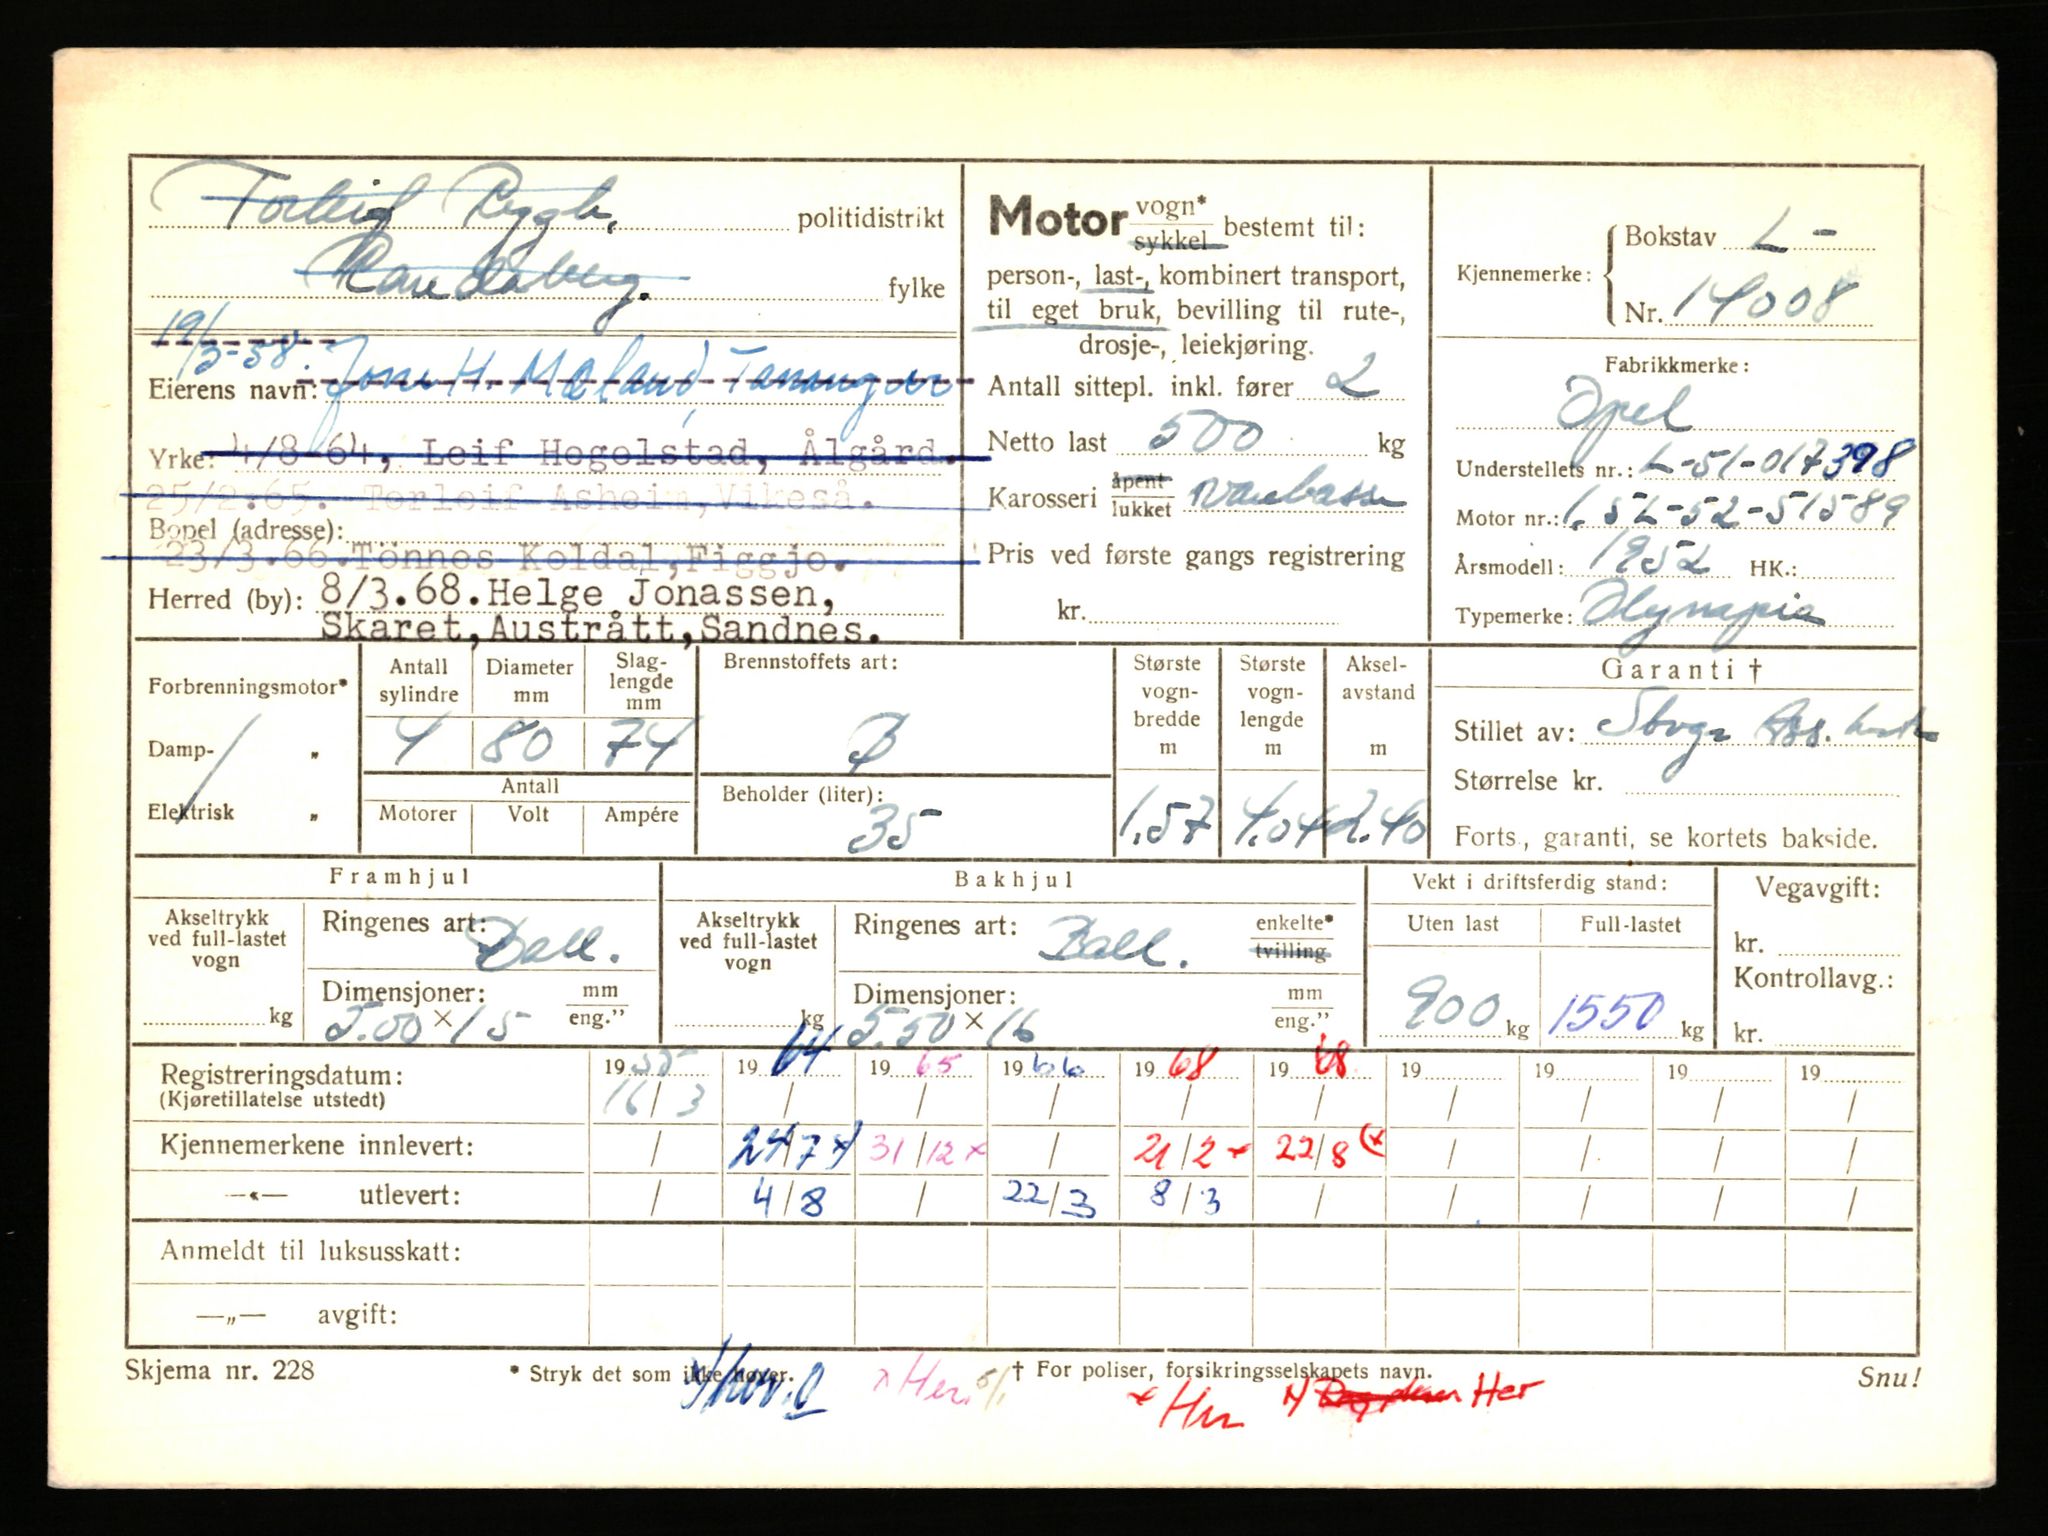 Torleif Rygh, politidistrikt
Randaberg. fylke
19/3-58. 
Eierens navn: Jone H. Mæland, Tananger
Yrke: 4/8-64, Leif Hegelstad, Ålgård.
25/2.65. Torleif Asheim, Vikeså.
Bopel (adresse):
23/3.66. Tönnes Koldal, Figgjo.
Herred (by): 8/3.68. Helge Jonassen,
Skaret, Austrått, Sandnes.
Motor vogn* / sykkel bestemt til:
person-, last-, kombinert transport,
til eget bruk, bevilling til rute-,
drosje-, leiekjøring.
Antall sittepl. inkl. fører 2
Netto last 500 kg
Karosseri åpent / lukket varebasse
Pris ved første gangs registrering
kr.
Kjennemerke: Bokstav L-
Nr. 14008
Fabrikkmerke:
Opel
Understellets nr.: L-51-017398
Motor nr.: 1,5L-52-51589
Årsmodell: 1952 HK.:
Typemerke: Olympia
Forbrenningsmotor*
Damp- „
Elektrisk „
Antall sylindre 4
Diameter mm 80
Slag-lengde mm 74
Antall
Motorer Volt Ampére
Brennstoffets art:
B
Beholder (liter):
35
Største vogn-bredde m 1.57
Største vogn-lengde m 4.04
Aksel-avstand m 2.40
Garanti †
Stillet av:
Størrelse kr.
Forts., garanti, se kortets bakside.
Framhjul
Akseltrykk ved full-lastet vogn
kg
Ringenes art: Ball.
Dimensjoner: mm / eng."
5.00 × 15
Bakhjul
Akseltrykk ved full-lastet vogn
kg
Ringenes art: Ball. enkelte* / tvilling
Dimensjoner: mm / eng."
5.50 × 16
Vekt i driftsferdig stand:
Uten last Full-lastet
900 kg 1550 kg
Vegavgift:
kr.
Kontrollavg.:
kr.
Registreringsdatum: 1955 1964 1965 1966 1968 1968 19 19 19 19
(Kjøretillatelse utstedt) 16/3 / / / / / / / / /
Kjennemerkene innlevert: / 24/7 x) 31/12 x / 21/2 x 22/8 (x / / / /
—«— utlevert: / 4/8 / 22/3 8/3 / / / / /
Anmeldt til luksusskatt:
—„— avgift:
Skjema nr. 228
* Stryk det som ikke høver.
† For poliser, forsikringsselskapets navn.
Snu!
x Her.
x Her
x) Her